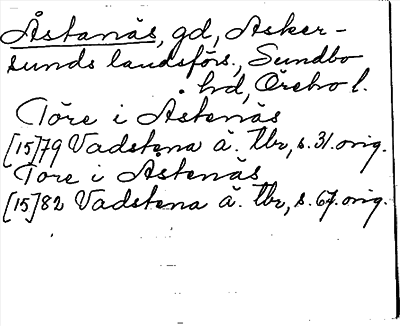 Åstanäs, gd, Asker-
sunds landsförs., Sundbo
hd, Örebro l.
Tore i Astenäs
[15]79 Vadstena ä. tbr, s. 31. orig.
Tore i Åstenäs
[15]82 Vadstena ä. tbr, s. 67. orig.